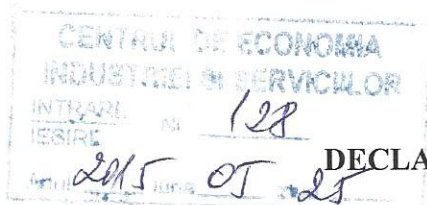 CENTRUL DE ECONOMIA
INDUSTRIEI ŞI SERVICIILOR
INTRARE
IESIRE Nr 128
Anul 2015 luna 05 25
DECLA